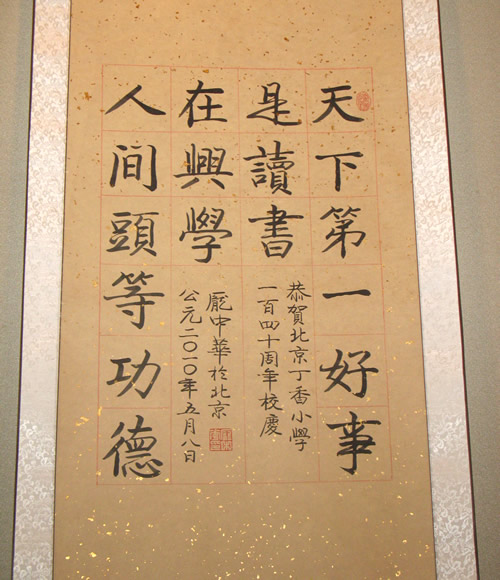 天下第一好事
是讀書
恭賀北京丁香小學
一百四十周年校慶
人間頭等功德
在興學
龐中華於北京
公元二〇一〇年五月八日